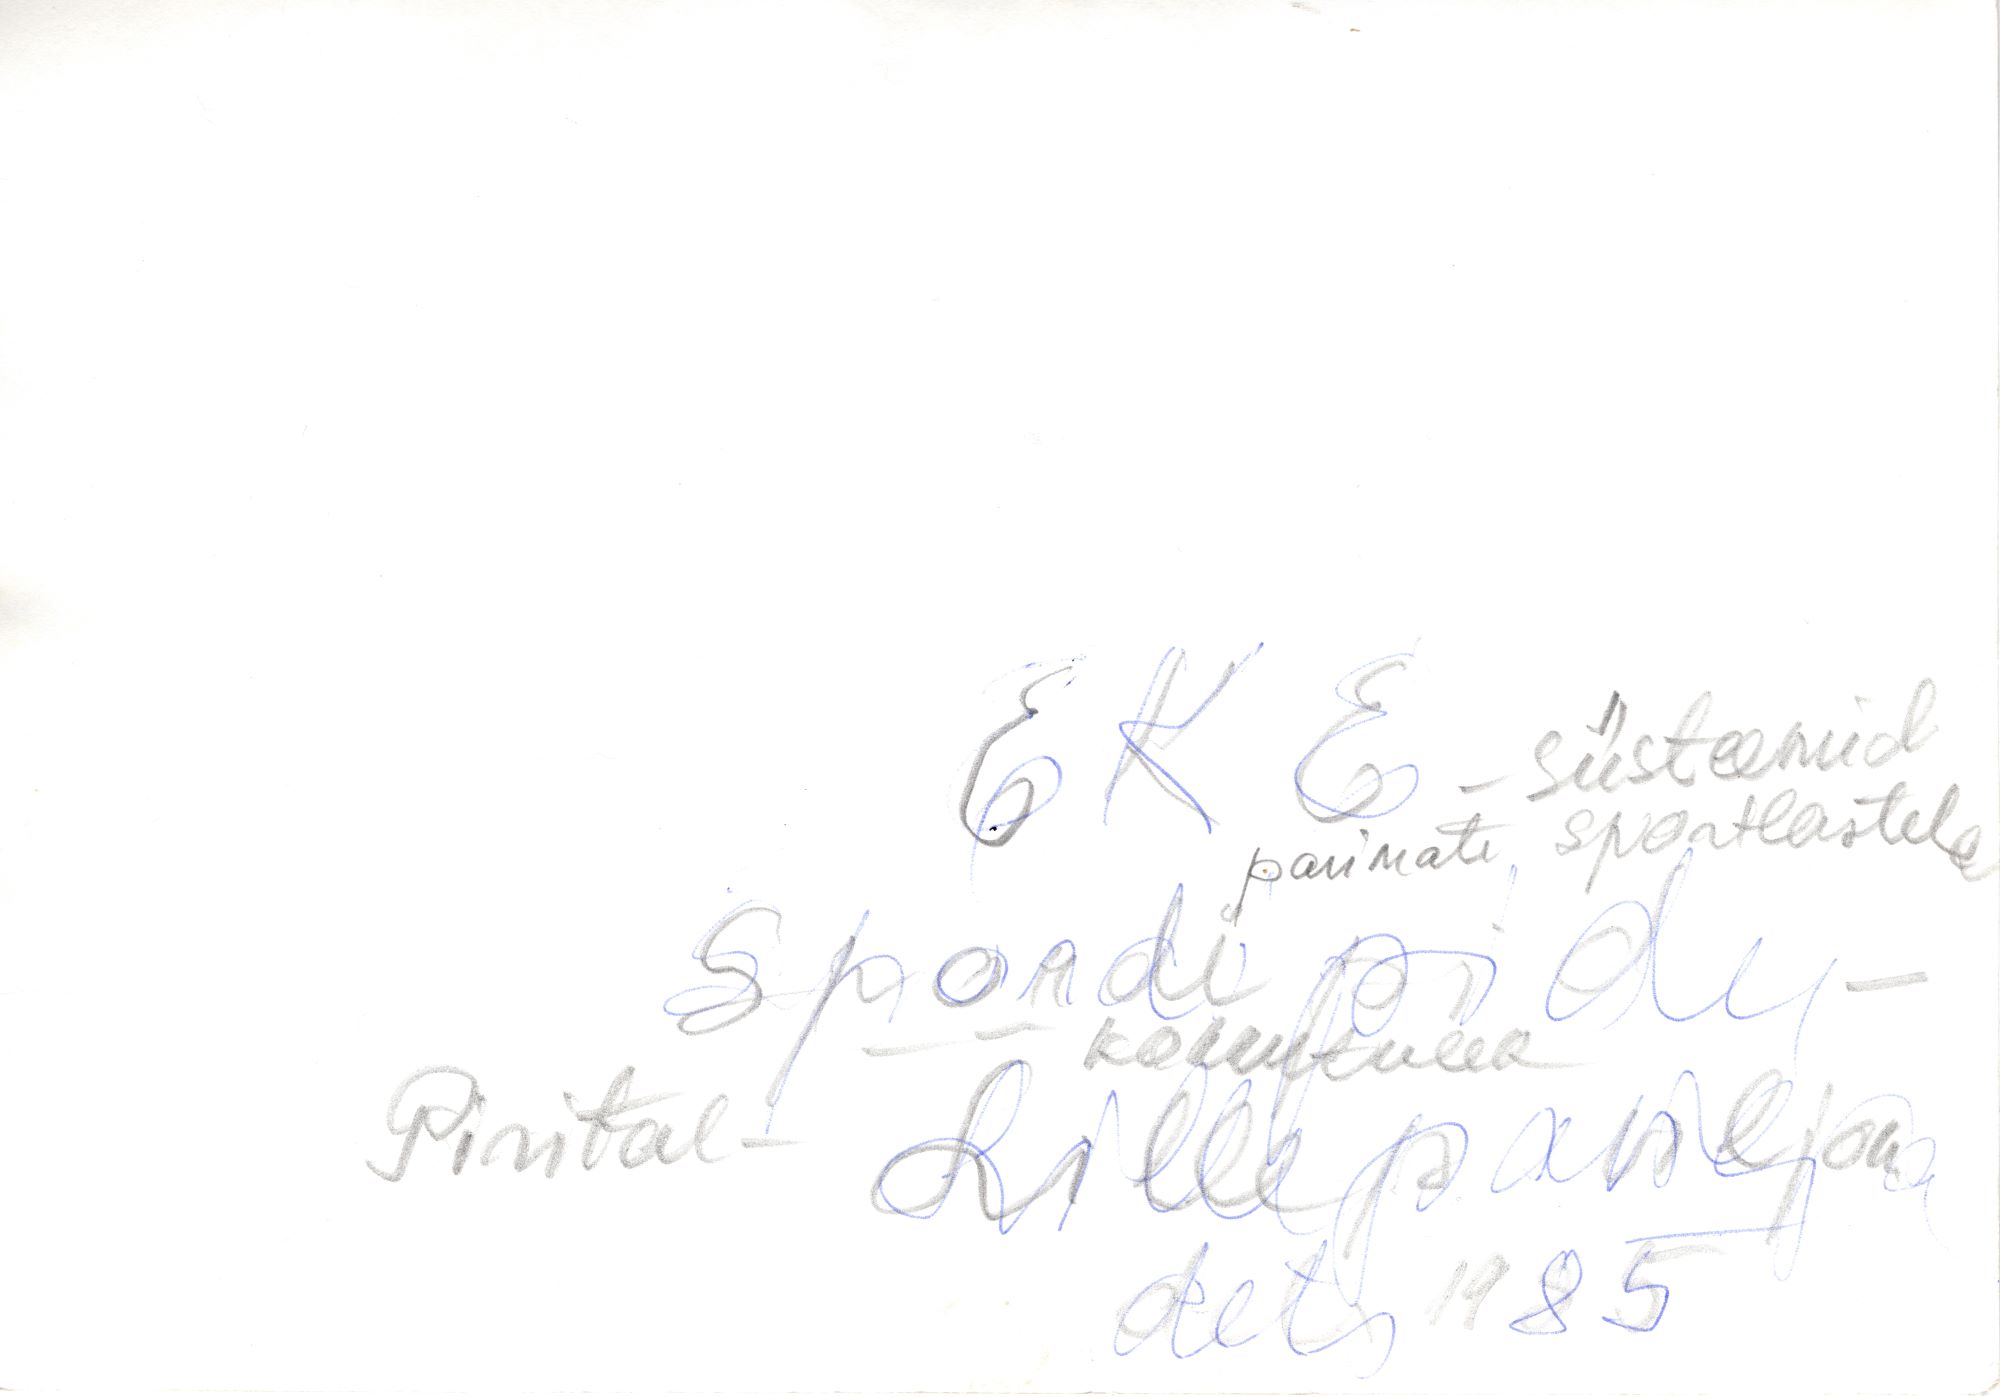 EKE - süsteemid
parimate sportlastele
Spordi pidu -
Pirital - Lillepaviljonis
dets 1985